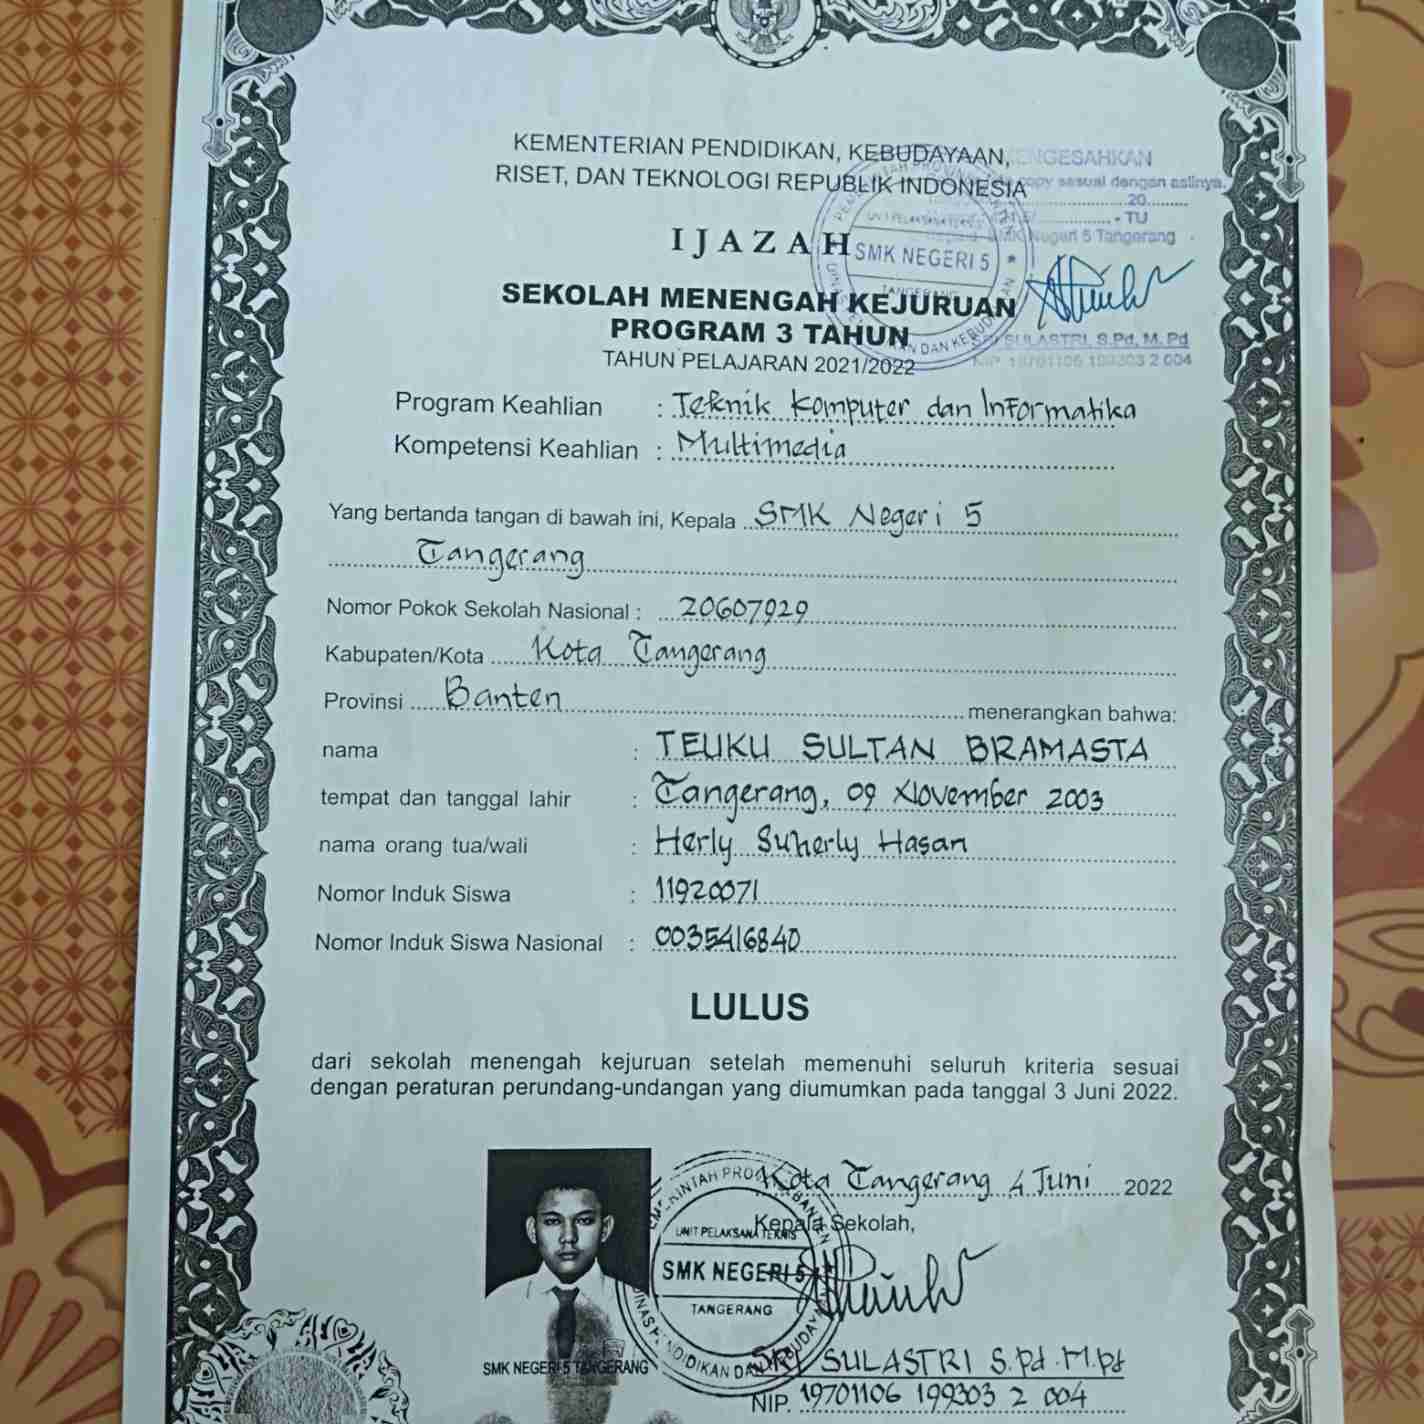 KEMENTERIAN PENDIDIKAN, KEBUDAYAAN,
RISET, DAN TEKNOLOGI REPUBLIK INDONESIA
MENGESAHKAN
copy sesuai dengan aslinya.
20
- TU
SMK Negeri 5 Tangerang
SMK NEGERI 5
TANGERANG
SRI SULASTRI, S.Pd, M. Pd
NIP. 19701106 199303 2 004
IJAZAH
SEKOLAH MENENGAH KEJURUAN
PROGRAM 3 TAHUN
TAHUN PELAJARAN 2021/2022
Program Keahlian : Teknik Komputer dan Informatika
Kompetensi Keahlian : Multimedia
Yang bertanda tangan di bawah ini, Kepala SMK Negeri 5
Tangerang
Nomor Pokok Sekolah Nasional : 20607929
Kabupaten/Kota Kota Tangerang
Provinsi Banten menerangkan bahwa:
nama : TEUKU SULTAN BRAMASTA
tempat dan tanggal lahir : Tangerang, 09 November 2003
nama orang tua/wali : Herly Suherly Hasan
Nomor Induk Siswa : 11920071
Nomor Induk Siswa Nasional : 0035416840
LULUS
dari sekolah menengah kejuruan setelah memenuhi seluruh kriteria sesuai
dengan peraturan perundang-undangan yang diumumkan pada tanggal 3 Juni 2022.
Kota Tangerang 4 Juni 2022
Kepala Sekolah,
UNIT PELAKSANA TEKNIS
SMK NEGERI 5
TANGERANG
DINAS PENDIDIKAN DAN KEBUDAYAAN
SMK NEGERI 5 TANGERANG
SRI SULASTRI S.Pd.M.Pd
NIP. 19701106 199303 2 004